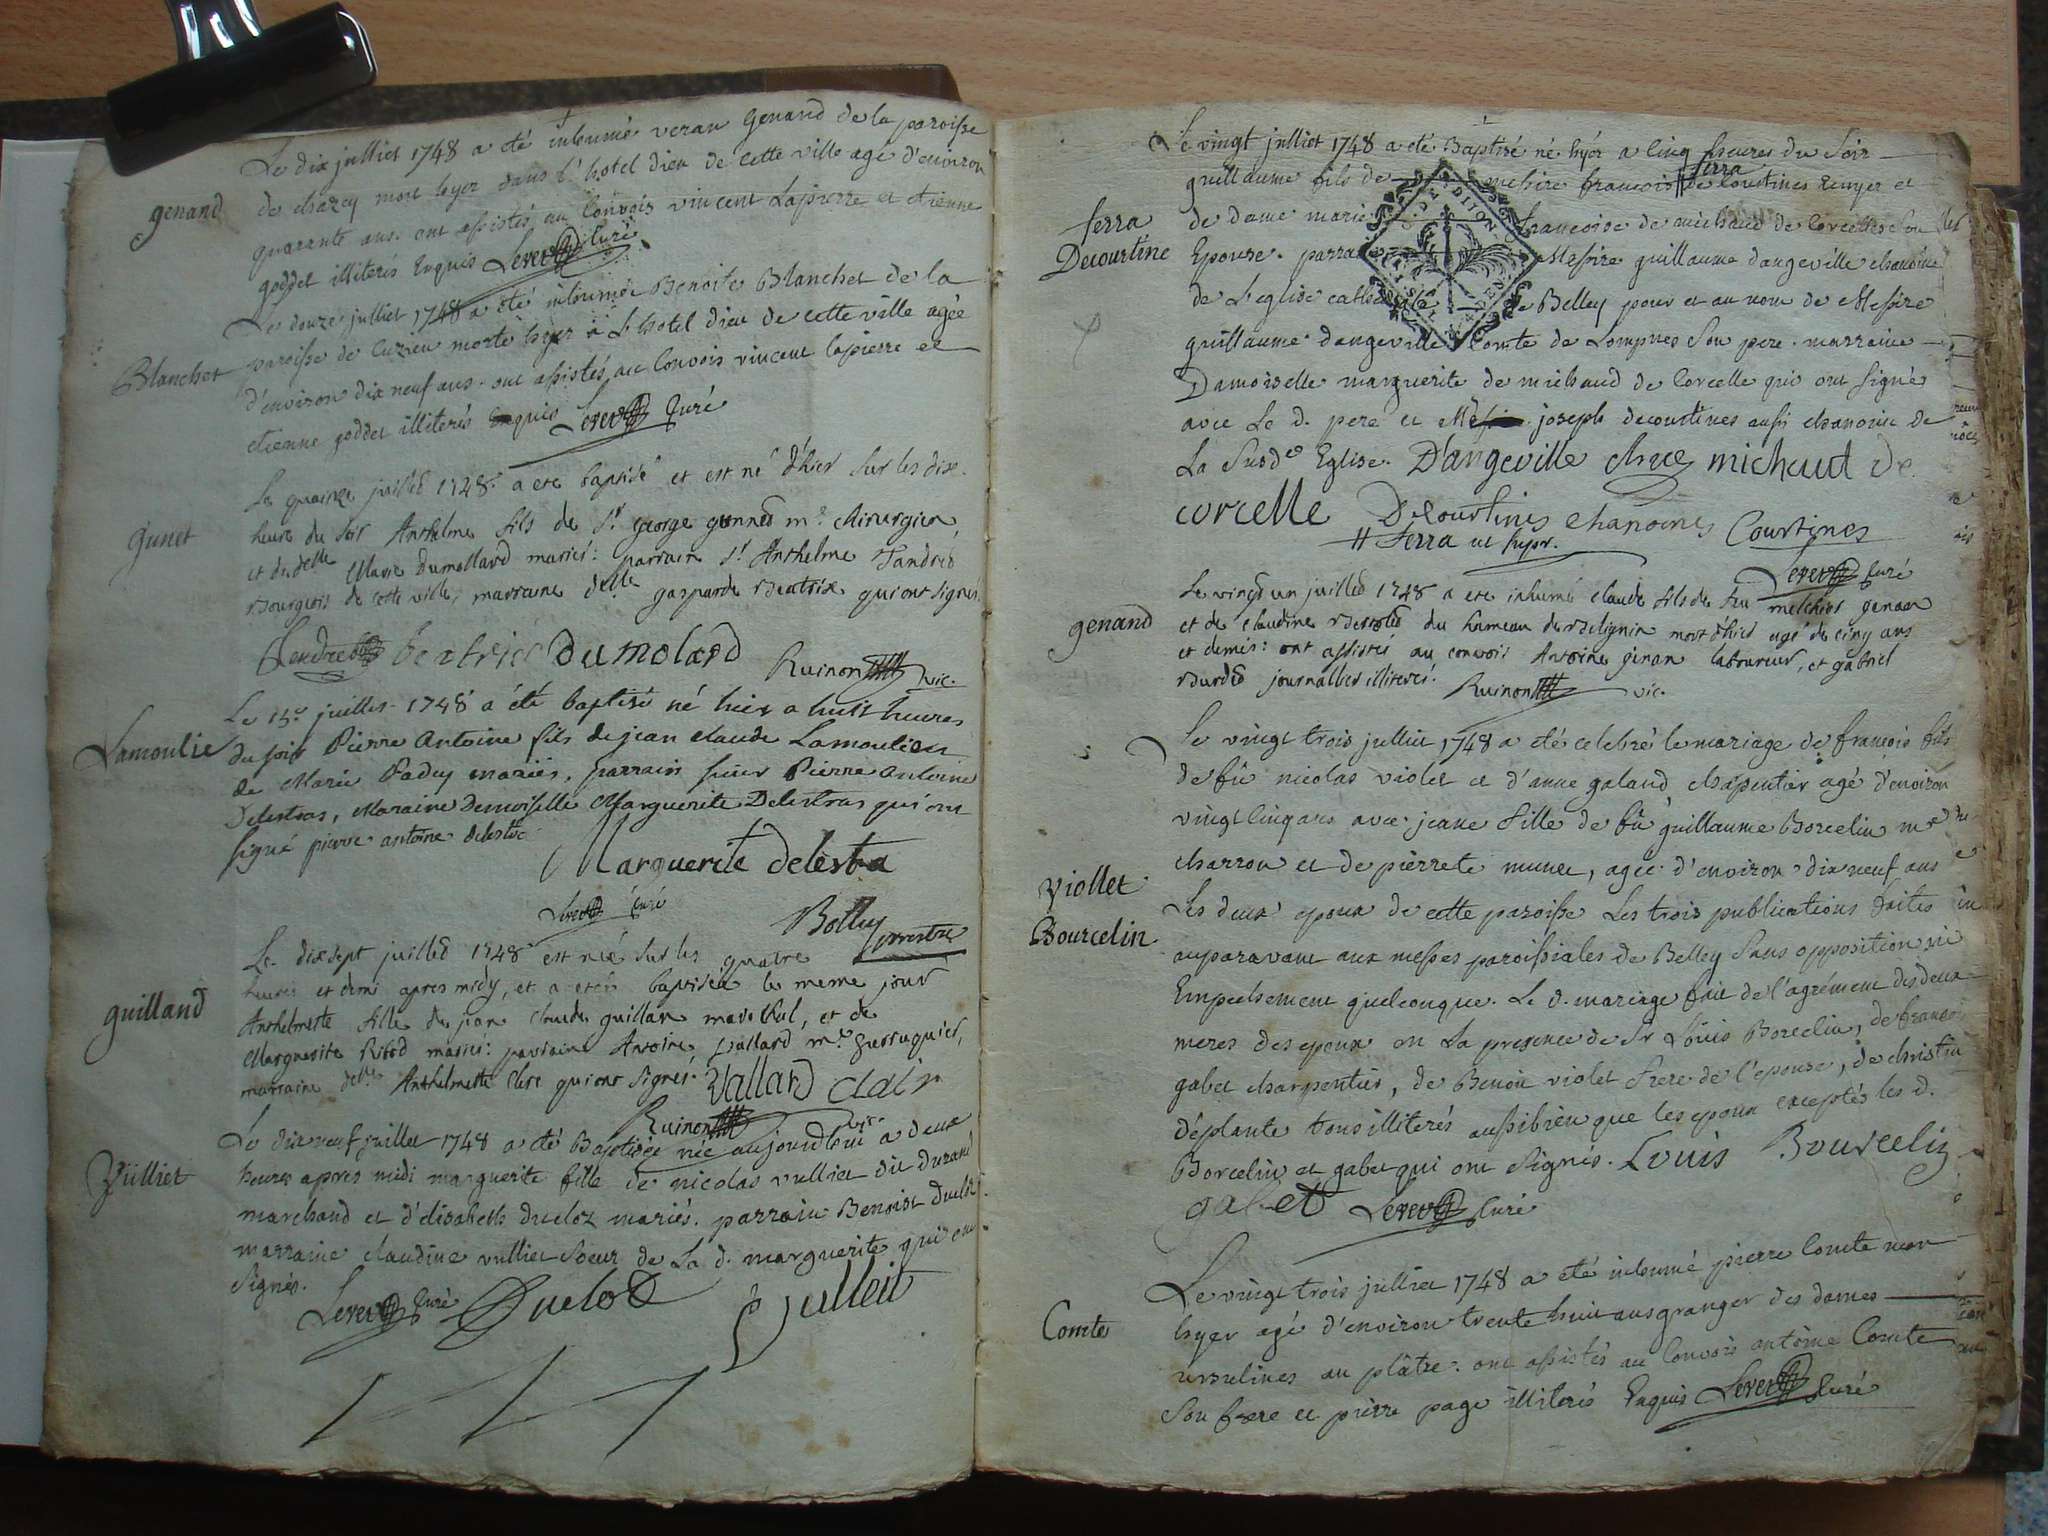 Le dix julliet 1748 a été inhumé veran Genand de la paroisse
genand
de chazey mort hyer dans l'hotel dieu de cette ville agé d'environ
quarante ans. ont assistés au Convois vincent Lapierre et etienne
goddet illiterés Enquis Curé
Le douze julliet 1748 a été inhumée Benoite Blanchet de la
Blanchet
paroisse de Cuzieu morte hyer à L'hotel dieu de cette ville agée
d'environ dix neuf ans. ont assistés au Convois vincent lapierre et
etienne goddet illiterés Enquis Curé
Le quinze juillet 1748 a eté baptisé et est né d'hier sur les dix
gunet
heures du soir Anthelme fils de Sr george gunned me chirurgien
et de delle Marie Dumollard mariés: parrain sr Anthelme Tandred
Bourgeois de cette ville, marraine delle gasparde Beatrix qui ont signés.
Beatrice Dumolard
Ruinon vic.
Le 15e juillet 1748 a été baptisé né hier a huit heures
Lamoulie
du soir Pierre Antoine fils de jean claude Lamoulie et
de Marie Paduy mariés, parrain sieur Pierre Antoine
Delestras, Maraine Demoiselle Marguerite Delestras qui ont
signé pierre antoine delestra
Marguerite delestra
Curé
Bolley prestre
Le dix sept juillet 1748 est née sur les quatre
heures et demi apres midy, et a eté baptisée le meme jour
guilland
Anthelmette fille de jean claude guillan marechal, et de
Marguerite Ribod mariés: parrain Antoine Vallard me perruquier,
marraine delle Anthelmette Clere qui ont signés. Vallard Clair
Ruinon vic.
Le dix neuf juillet 1748 a été Baptisée née aujourdhui a deux
Vulliet
heures apres midi marguerite fille de nicolas vulliet dit durand
marchand et d'elisabeth ducloz mariés. parrain Benoist ducloz
marraine claudine vulliet soeur de La d. marguerite qui ont
signés.
Curé Duclot Vulleit
Le vingt julliet 1748 a été Baptisé né hyer a Cinq heures du Soir
guillaume fils de messire francois Serra de Coustines Ecuyer et
Serra
Decourtine
de dame marie francoise de michaud de Corcelle son
Epouse. parrain Messire guillaume dangeville chanoine
de L'eglise cathedrale de Belley pour et au nom de Messire
guillaume dangeville Comte de Lompnes Son pere. marraine
Damoiselle marguerite de michaud de Corcelle qui ont signés
avec Le d. pere et joseph decourtines aussi chanoine de
La Susde Eglise. D'angeville chne michaud de
corcelle Decourtines chanoines Courtines
# Serra ut supr.
Curé
Le vingt un juillet 1748 a eté inhumé claude fils de feu melchior genan
genand
et de claudine du hameau de Belignin mort d'hier agé de cinq ans
et demis: ont assistés au convois Antoine genan laboureur, et gabriel
journallier illiterés. Ruinon vic.
Le vingt trois julliet 1748 a été celebré le mariage de francois fils
de fû nicolas violet et d'anne galand charpentier agé d'environ
vingt cinq ans avec jeane fille de fû guillaume Borcelin me
charron et de pierrete munet, agée d'environ dix neuf ans
Viollet
Bourcelin
Les deux epoux de cette paroisse Les trois publications faites
auparavant aux messes paroissiales de Belley sans opposition ni
Empechement quelconque. Le d. mariage fait de l'agrément des deux
meres des epoux en La presence de Sr Loüis Borcelin, de francois
gabet charpentier, de Benoit violet frere de l'epouse, de christin
déplante tous illiterés aussi bien que les epoux exceptés les d.
Borcelin et gabet qui ont signés. Louis Bourcelin
gabet Curé
Le vingt trois julliet 1748 a été inhumé pierre Comte mort
Comte
hyer agé d'environ trente huit ans granger des dames
ursulines au plâtre. ont assistés au Convois antoine Comte
Son frere et pierre page illiterés Enquis Curé